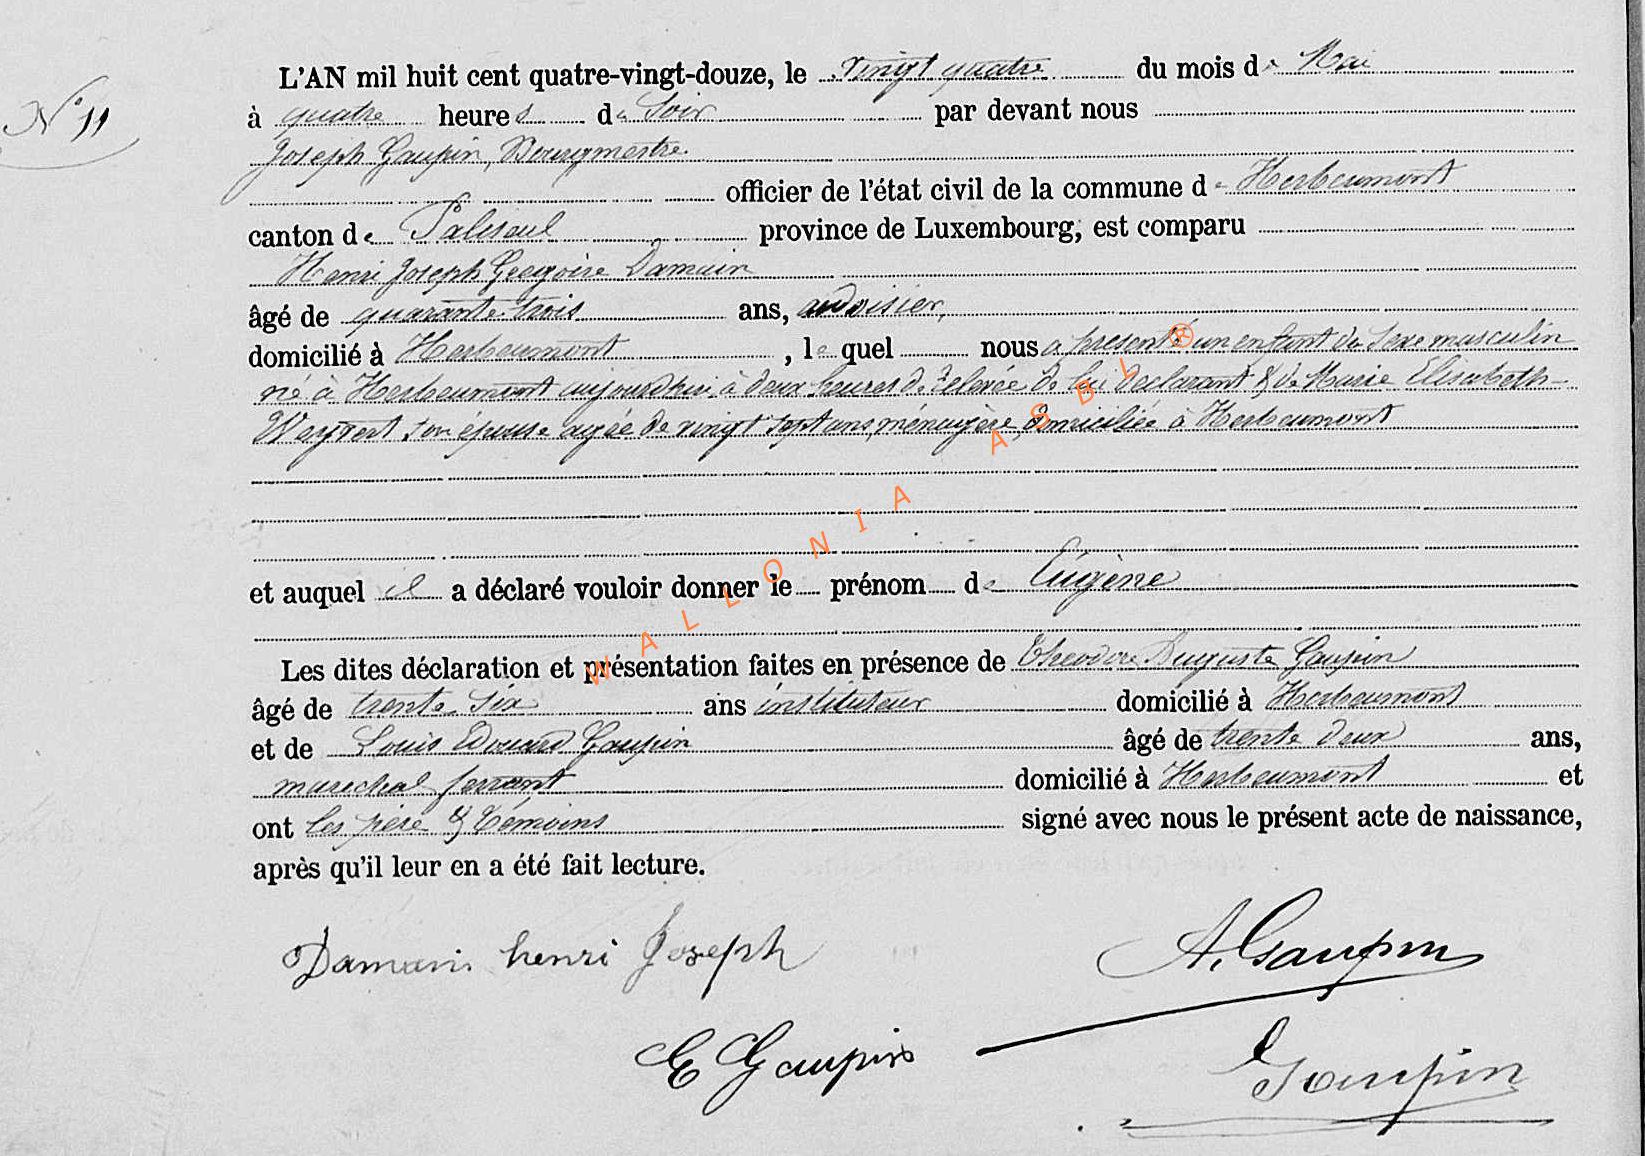 N° 11
L'AN mil huit cent quatre-vingt-douze, le vingt quatre du mois de Mai
à quatre heures du Soir par devant nous
Joseph Gaupin, Bourgmestre
officier de l'état civil de la commune de Herbeumont
canton de Paliseul province de Luxembourg, est comparu
Henri Joseph Gregoire Damain
âgé de quarante trois ans, ardoisier,
domicilié à Herbeumont, lequel nous a présenté un enfant du Sexe masculin
né à Herbeumont aujourdhui à deux heures de relevée de lui déclarant & de Marie Elisabeth
son épouse agée de vingt sept ans, ménagère, domiciliée à Herbeumont
et auquel il a déclaré vouloir donner le prénom de Eugène
Les dites déclaration et présentation faites en présence de Theodore Auguste Gaupin
âgé de trente Six ans instituteur domicilié à Herbeumont
et de Louis Edouard Gaupin âgé de trente deux ans,
marechal ferrant domicilié à Herbeumont et
ont les père & témoins signé avec nous le présent acte de naissance,
après qu'il leur en a été fait lecture.
Damain henri Joseph
A. Gaupin
E Gaupin
Gaupin
WALLONIA ASBL ®